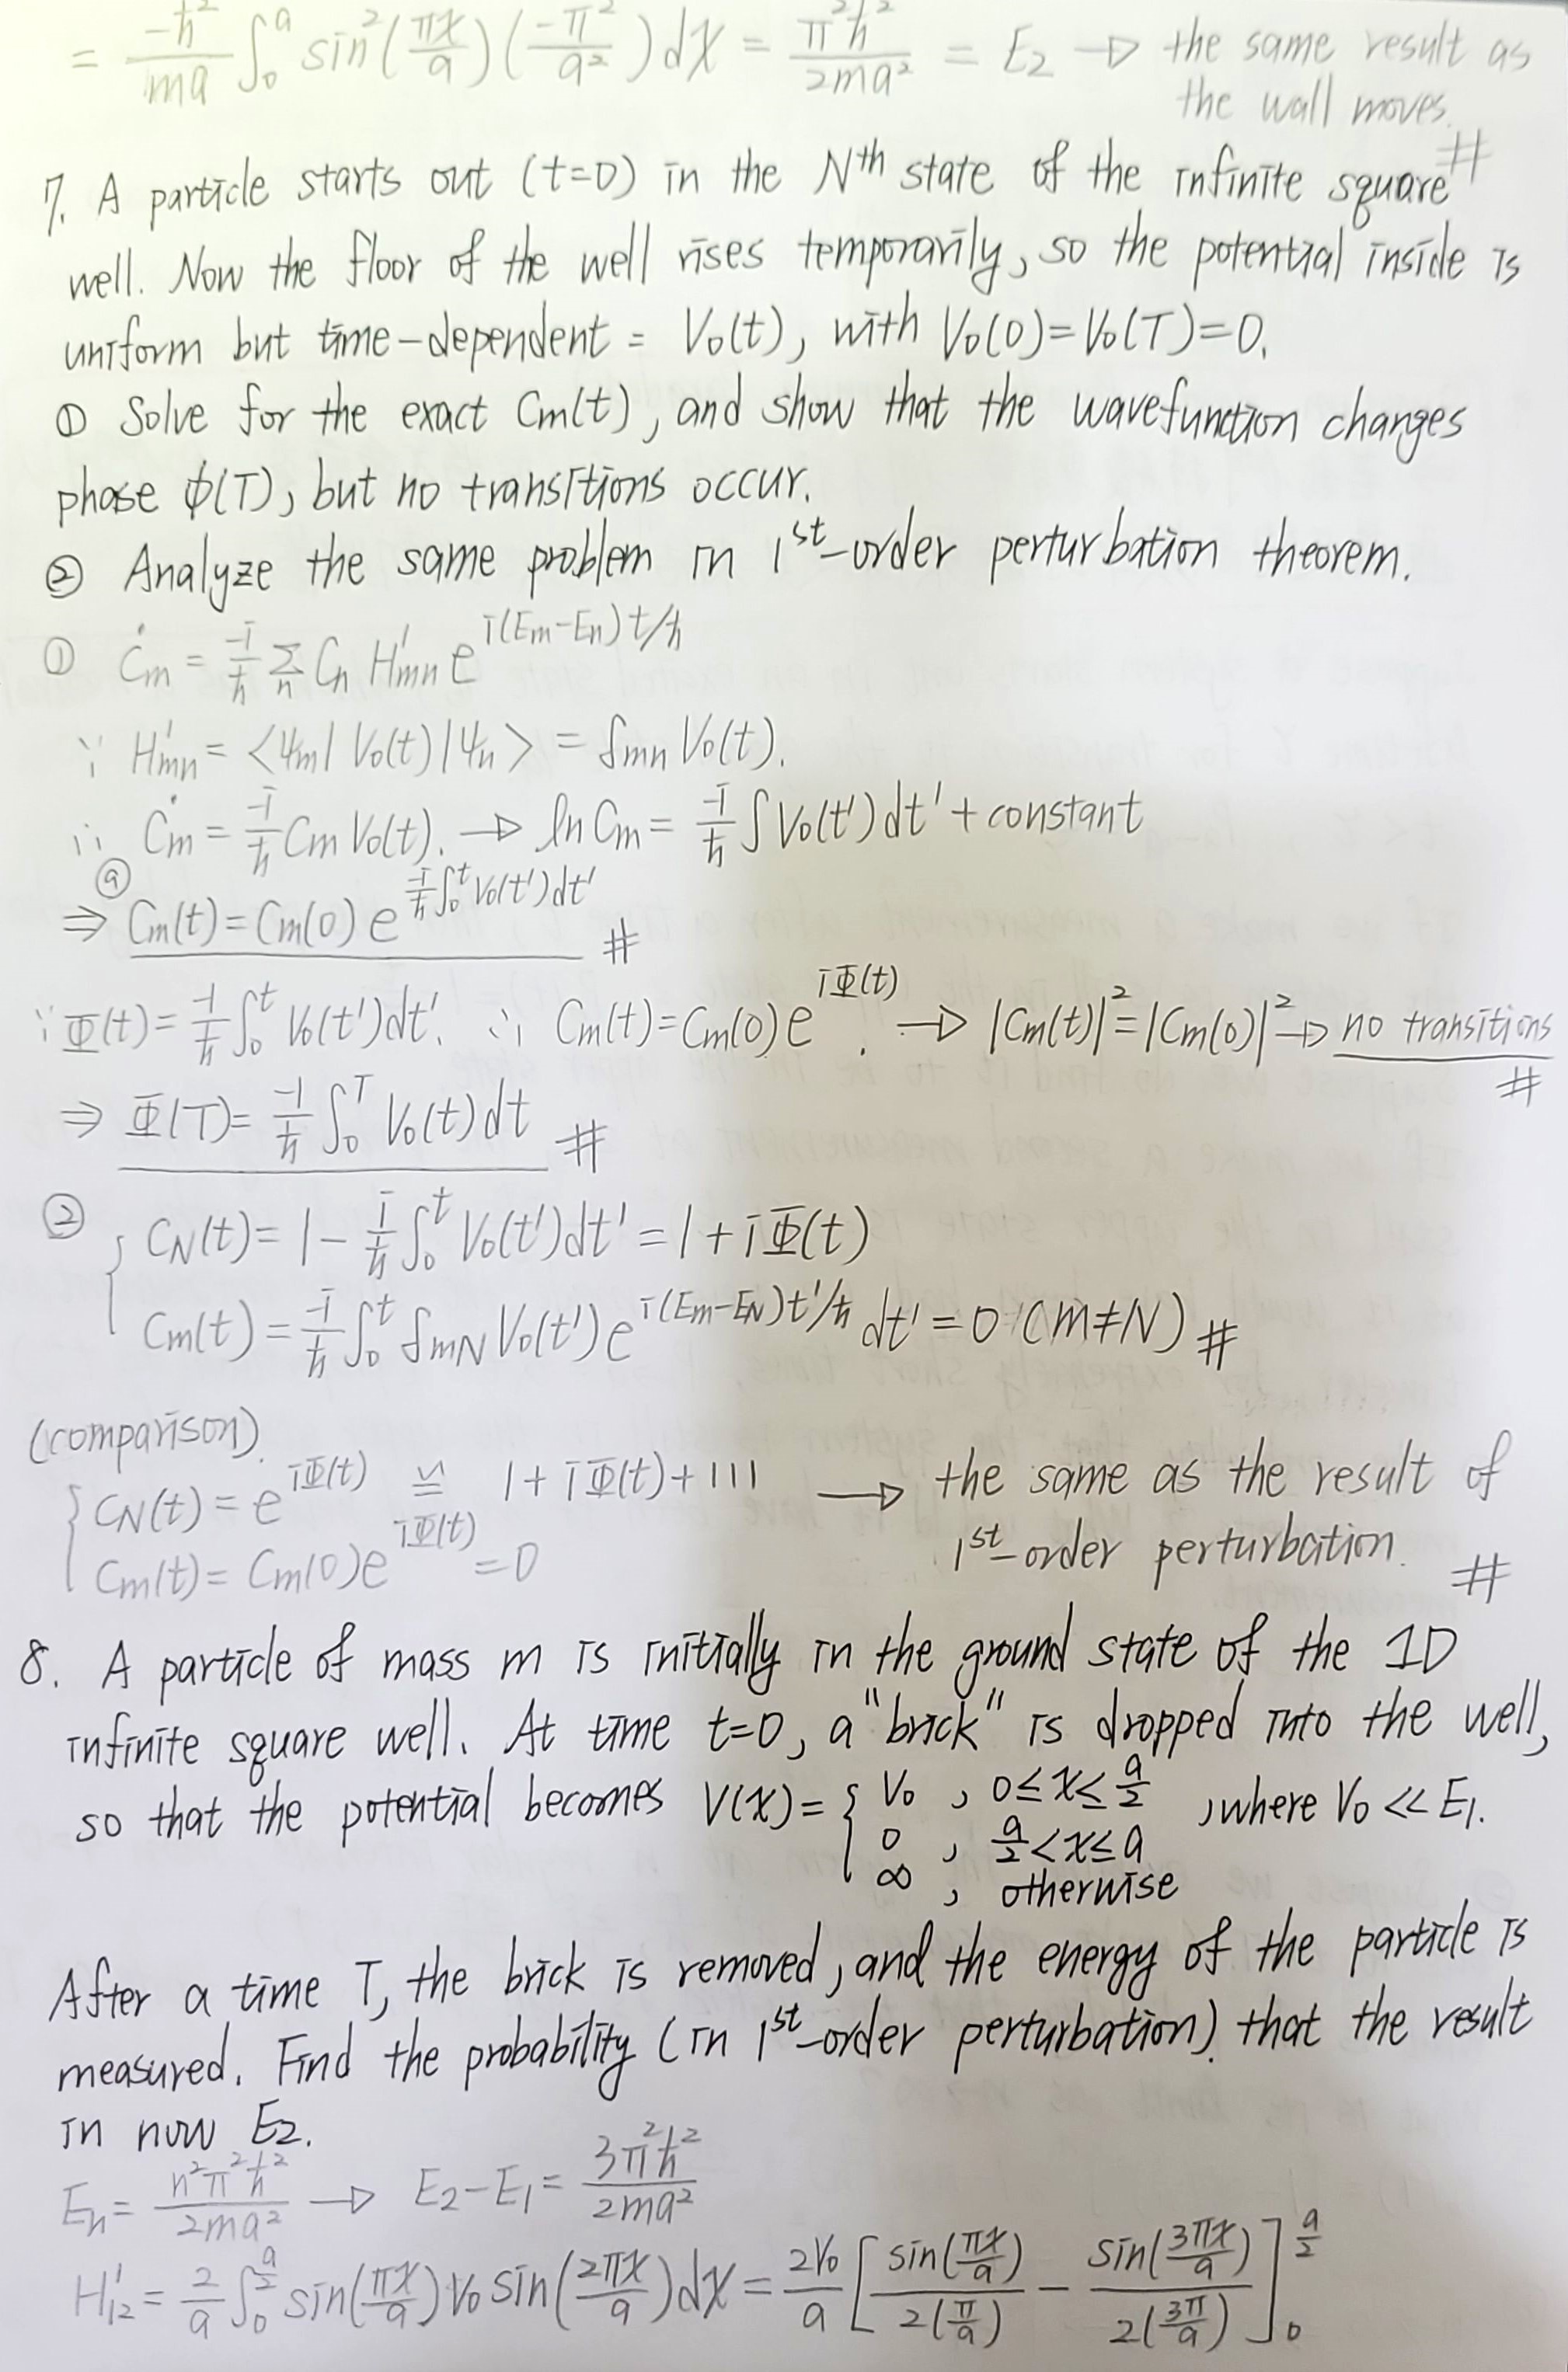 = -ħ²/ma ∫₀ᵃ sin²(πx/a)(-π²/a²)dx = π²ħ²/2ma² = E₂ → the same result as
the wall moves. #
7. A particle starts out (t=0) in the Nᵗʰ state of the infinite square
well. Now the floor of the well rises temporarily, so the potential inside is
uniform but time-dependent = V₀(t), with V₀(0)=V₀(T)=0.
① Solve for the exact Cm(t), and show that the wavefunction changes
phase ϕ(T), but no transitions occur.
② Analyze the same problem in 1ˢᵗ-order perturbation theorem.
① Ċm = -i/ħ Σₙ Cn H'mn e^{i(Em-En)t/ħ}
∵ H'mn = <ψm| V₀(t) |ψn> = δmn V₀(t).
∴ Ċm = -i/ħ Cm V₀(t). → ln Cm = -i/ħ ∫ V₀(t')dt' + constant
ⓐ
⇒ Cm(t) = Cm(0) e^{-i/ħ ∫₀ᵗ V₀(t')dt'} #
∵ Φ(t) = -1/ħ ∫₀ᵗ V₀(t')dt'. ∴ Cm(t) = Cm(0) e^{iΦ(t)}. → |Cm(t)|² = |Cm(0)|² → no transitions #
⇒ Φ(T) = -1/ħ ∫₀ᵀ V₀(t)dt #
② { CN(t) = 1 - i/ħ ∫₀ᵗ V₀(t')dt' = 1 + iΦ(t)
Cm(t) = -i/ħ ∫₀ᵗ δmN V₀(t') e^{i(Em-EN)t'/ħ} dt' = 0 (m≠N) #
(comparison).
{ CN(t) = e^{iΦ(t)} ≌ 1 + iΦ(t) + ııı → the same as the result of
Cm(t) = Cm(0)e^{iΦ(t)} = 0 1ˢᵗ-order perturbation. #
8. A particle of mass m is initially in the ground state of the 1D
infinite square well. At time t=0, a "brick" is dropped into the well,
so that the potential becomes V(x) = { V₀ , 0≤x≤a/2 , where V₀ << E₁.
0 , a/2<x≤a
∞ , otherwise
After a time T, the brick is removed, and the energy of the particle is
measured. Find the probability (in 1ˢᵗ-order perturbation) that the result
in now E₂.
En = n²π²ħ²/2ma² → E₂-E₁ = 3π²ħ²/2ma²
H'₁₂ = 2/a ∫₀^{a/2} sin(πx/a) V₀ sin(2πx/a)dx = 2V₀/a [ sin(πx/a)/2(π/a) - sin(3πx/a)/2(3π/a) ]₀^{a/2}